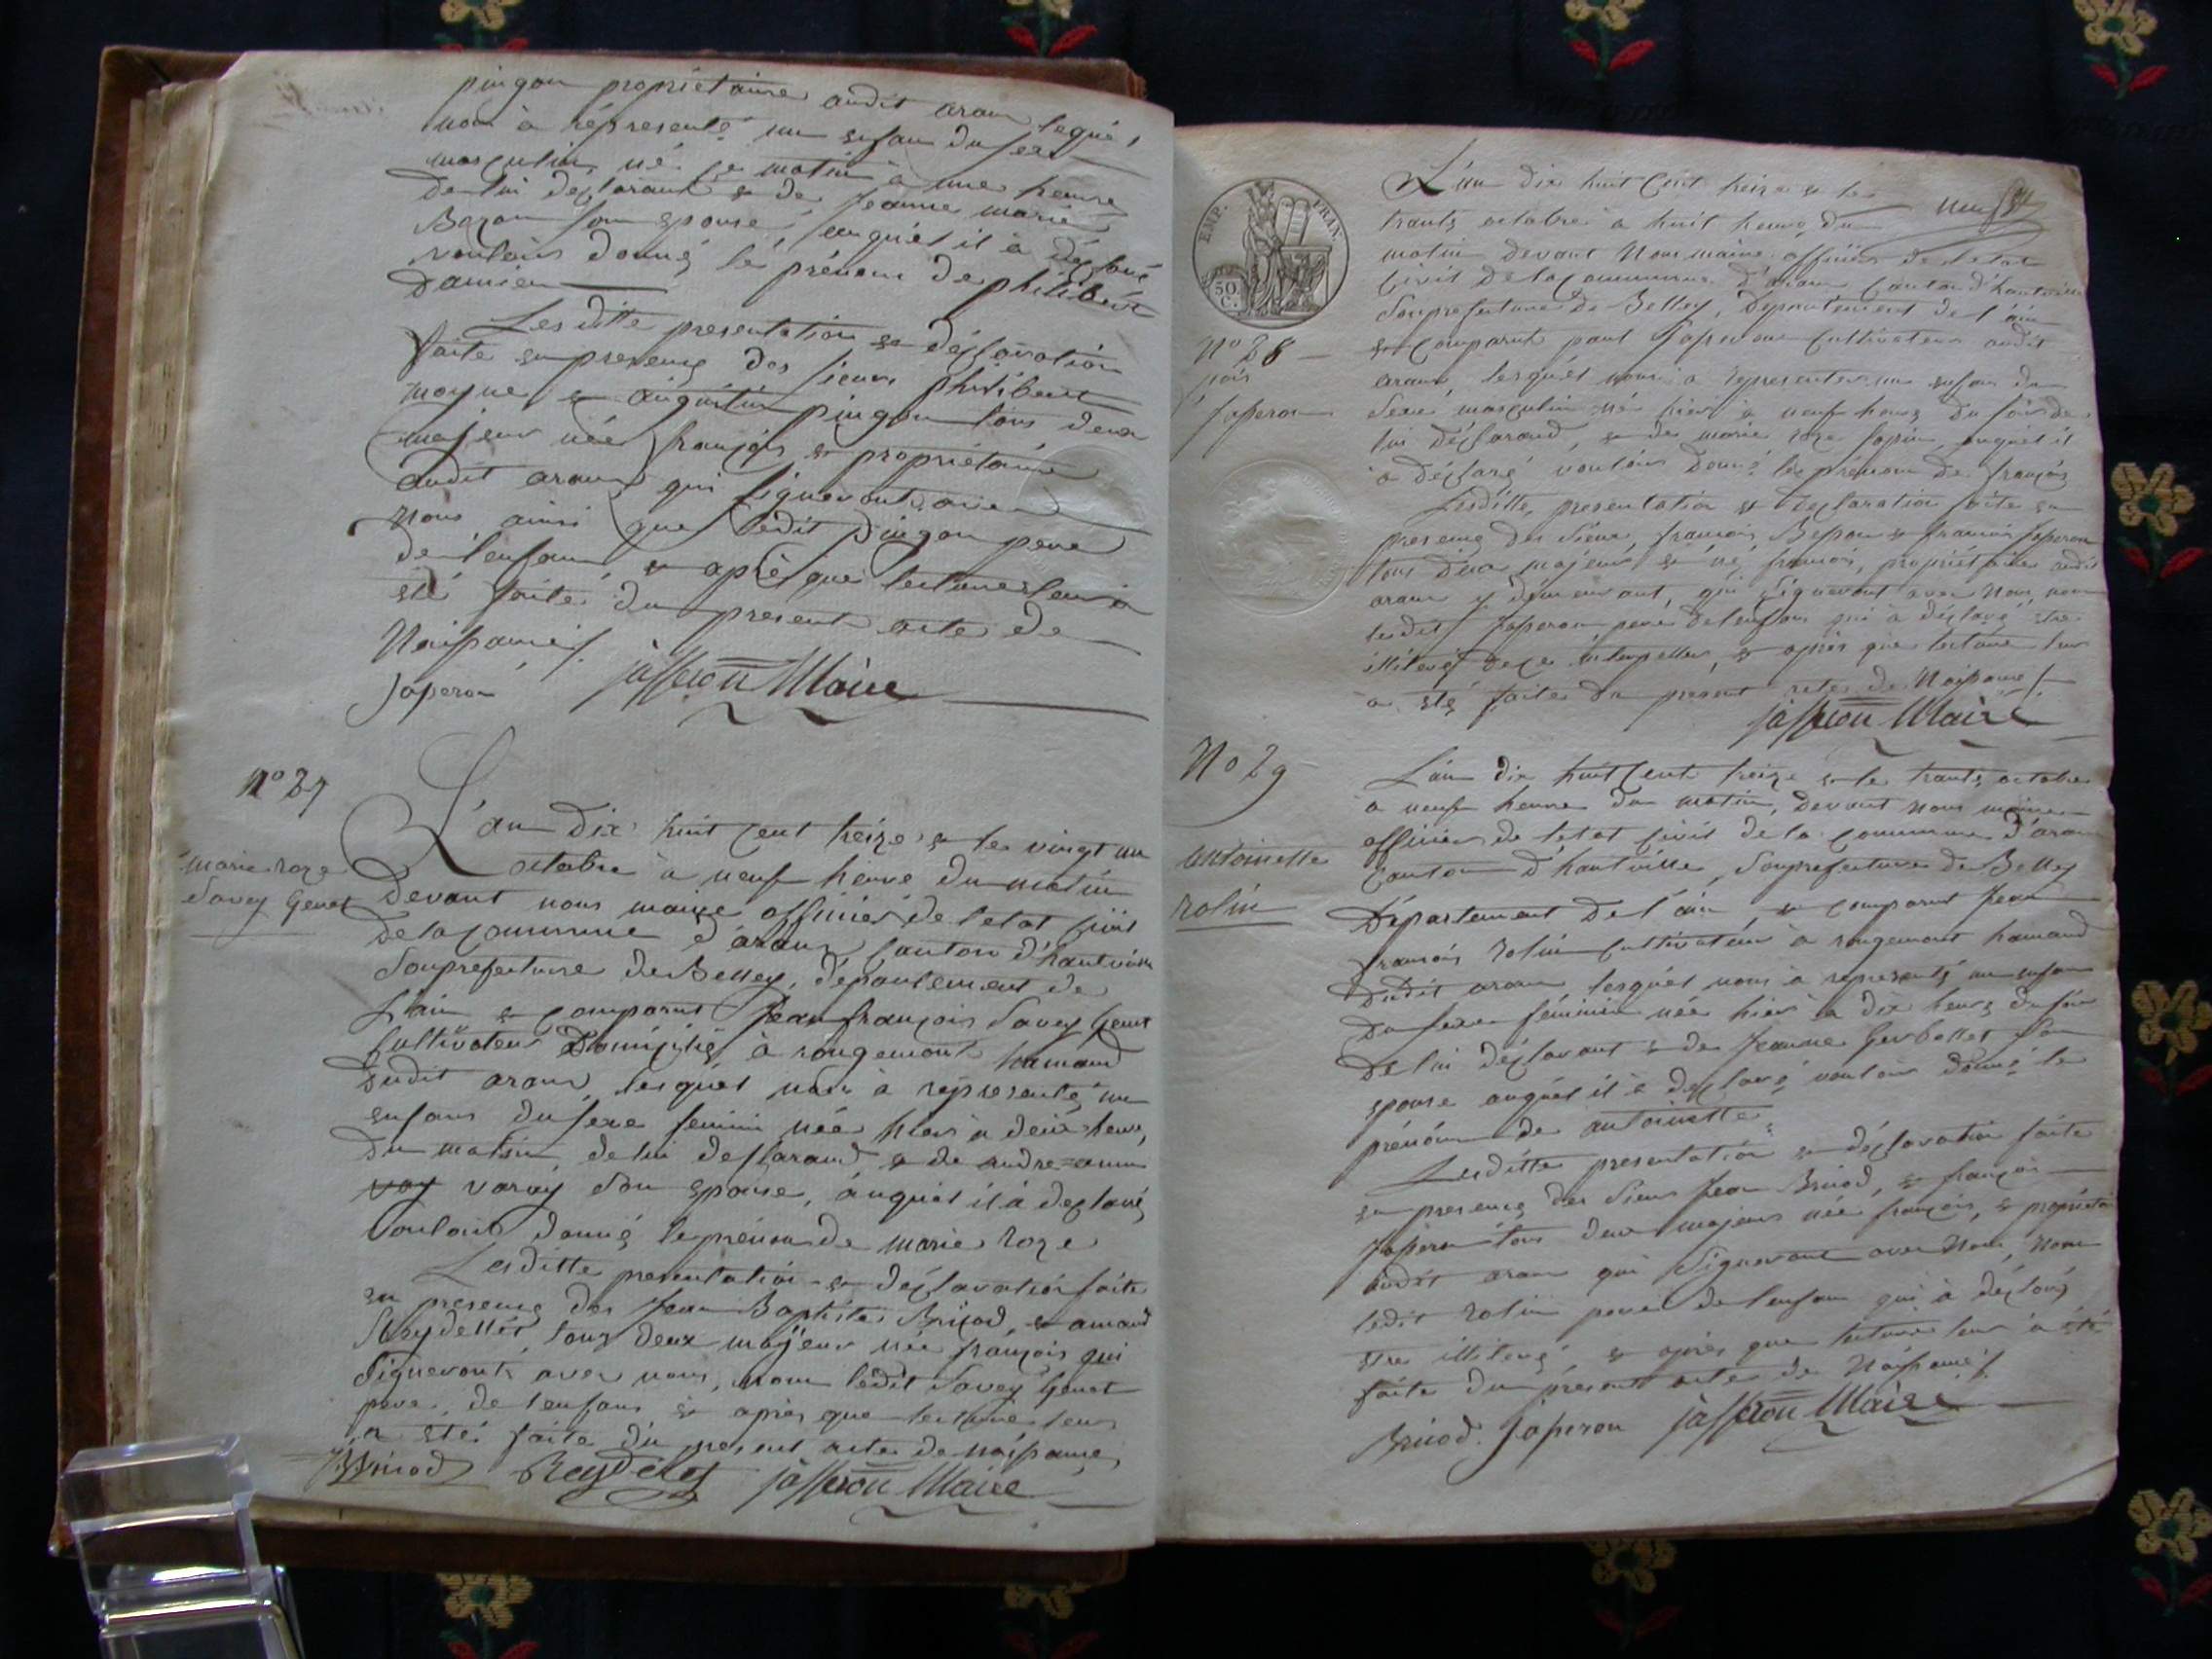 pingon propriétaire audit aran lequel
nous à représenté un enfan du sexe
masculin né ce matin à une heure
de lui declarant & de jeanne marie
Bozon son epouse, auquel il à déclaré
vouloir donné le prénom de philibert
Damien
Lesditte presentation & déclaration
faite en presence des sieurs philibert
moyne & augustin pingon tous deux
majeur née français & propriétaire
audit aran qui signeront avec
Nous ainsi que ledit pingon pere
de l'enfant & aprè que lecture leur à
été faite du present acte de
Naissance
japeron jasseron Maire
N° 27
marie roze
Savey Genet
L'an Dix huit cent treize & le vingt un
octobre à neuf heure du matin
Devant nous maire officier de l'etat civil
De la commune d'aran canton d'hautville
Souprefecture de Belley, département de
L'ain & comparut jean françois Savey Genet
cultivateur Domicilié à rougemont hamaud
dudit aran, lesquel nous à représenté un
enfans du sexe feminin née hier à deux heure,
Du matin, de lui declarand & de andre=anne
voy varay son epouse, auquel il à declaré
vouloir donné le prénom de marie roze
Lesditte presentation & declaration faite
en presence des jean Baptiste Briod, & amand
Reydellet, tous deux majeur née français qui
Signeront avec nous, nom ledit Savey Genet
pere, de l'enfans & après que lecture leur
a été faite du present acte de naissance
JBBriod Reydelet jasseron Maire
EMP. FRAN.
50
C.
N° 28
japeron
L'an dix huit cent treize & le
trante octobre à huit heure du
matin devant Nous maire officier de l'etat
civil De la commune d'aran canton d'hautville
Souprefecture De Belley, Département de l'ain
& comparut paul japeron cultivateur audit
aran, lesquel nous à representer un enfan du
sexe masculin né hier à neuf heure du soir de
lui déclarand, & de marie roze sapin, auquel il
à déclaré vouloir donné le prénom de françois
Lesditte, presentation & declaration faite en
presence des Sieur, francois Besson & francois japeron
tous deux majeur & né francois, propriétaire audit
aran y demeurant, qui signeront avec Nous, nom
ledit japeron pere de l'enfan qui à déclaré être
illiteré de ce interpeller, & après que lecture leur
a été faite du présent acte de Naissance
jasseron Maire
N° 29
antoinette
rolin
L'an dix huit cent treize & le trante octobre
à neuf heure du matin, devant nous maire
officier de l'etat civil de la commune d'aran
Canton d'hautville, Souprefecture de Belley
Département De l'ain, & comparut Jean
francois rolin cultivateur à rougemont hamaud
Dudit aran, lesquel nous à representé un enfan
Du sexe féminin née hier à dix heure du soir
De lui déclarant & de Jeanne Gerbollet son
epouse auquel il à declaré vouloir donné le
prénom de antoinette
Lesditte presentation & déclaration faite
en presence des Sieur Jean Briod, & françois
japeron tous deux majeur née français, & propriétaire
audit aran qui Signeront avec Nous, nom
ledit rolin pere de l'enfan qui à déclaré
etre illiteré, & après que lecture leur à été
faite du present acte de Naissance
Briod. japeron jasseron Maire